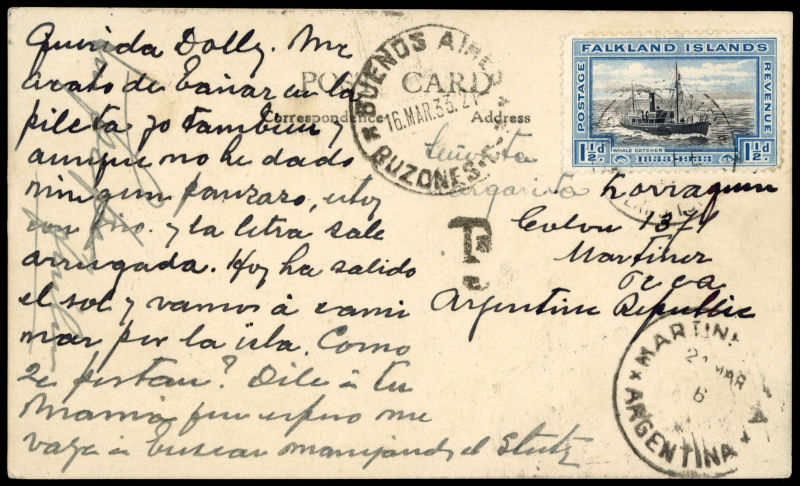 Querida Dolly. Me
acabo de bañar en la
pileta yo tambien y
aunque no he dado
ningun panzazo, estoy
con frio. y la letra sale
arrugada. Hoy ha salido
el sol y vamos á cami
nar por la isla. Como
se portan? Dile á tu
Mamá que espero me
vaya a buscar manejando el Stutz
POST CARD
Correspondence
Address
BUENOS AIRES
16.MAR.36.21
BUZONES
FALKLAND ISLANDS
POSTAGE
REVENUE
WHALE CATCHER
1½d
1833-1933
1½d
Señorita
Margarita Larraguin
Colon 1371
Martinez
F.C.C.A
Argentine Republic
T
MARTINEZ
21 MAR
6
ARGENTINA